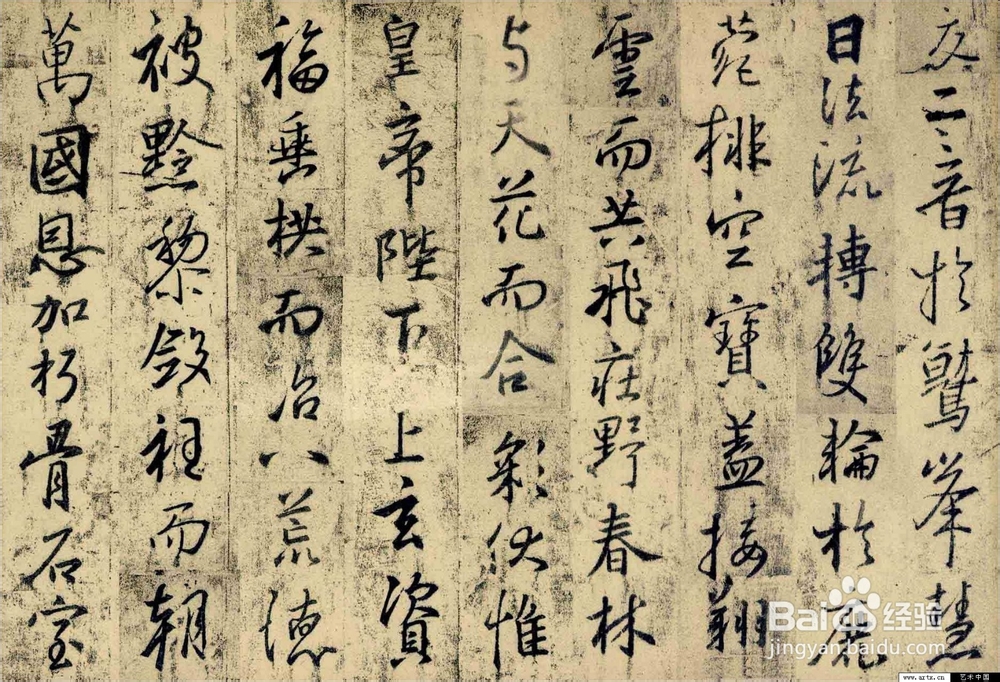 交二音於鷲峯慧
日法流轉雙輪於鹿
菀排空寶蓋接翔
雲而共飛莊野春林
与天花而合彩伏惟
皇帝陛下上玄資
福垂拱而治八荒德
被黔黎斂衽而朝
萬國恩加朽骨石室
Baidu经验
jingyan.baidu.com
www.artx.cn 艺术中国